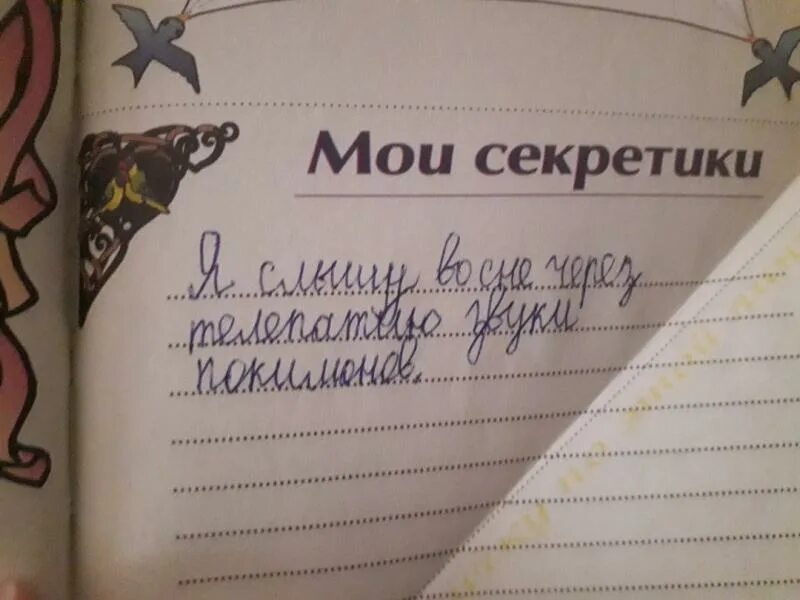 Мои секретики
Я слышу во сне через
телепатию звуки
покимонов.